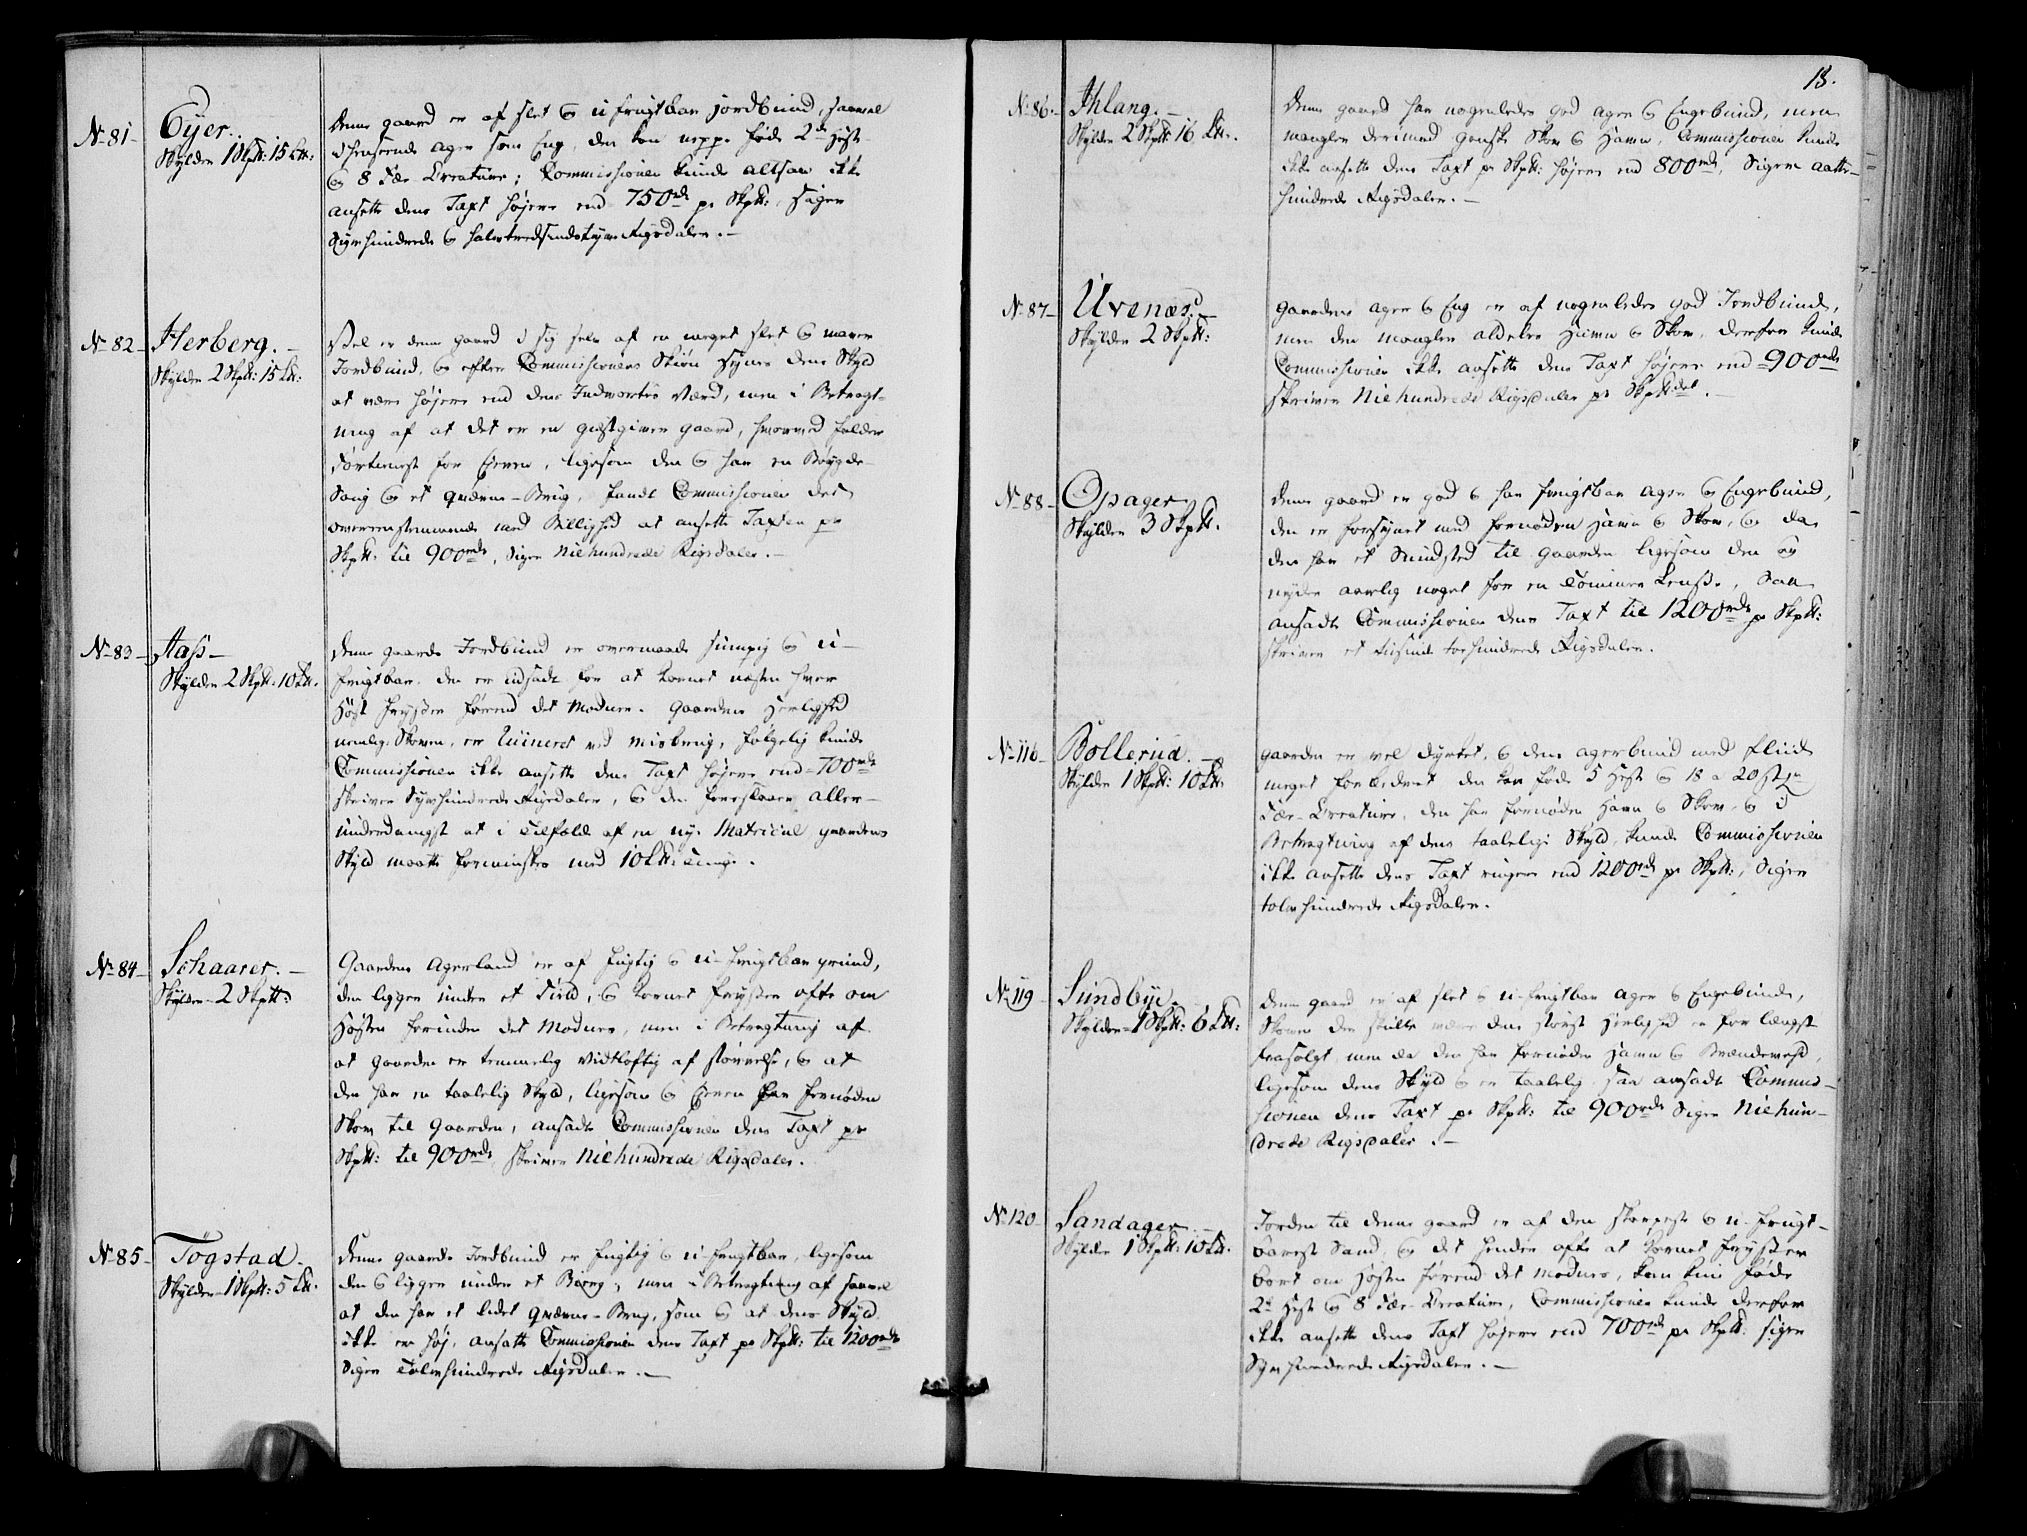 No 81 -
Eyer.
Skylder 1 Skp℔: 15 L℔:
Denne gaard er af slet og ufrugtbar jordbund, saavel
i henseende ager som Eng, den kan neppe føde 2de Heste
og 8 Fæe Creature; Commissionen kunde altsaa ikke
ansette dens Taxt højere end 750rd pr Skp℔:, siger
Syvhundrede og halvtredsindstyve Rigsdaler. -
No 82 -
Herberg. -
Skylder 2 Skp℔: 15 L℔:
Vel er denne gaard i sig selv af en meget slet og mager
Jordbund, og efter Commissionens Skiøn synes dens Skyld
at være højere end dens Indvortes Værd, men i Betragt-
ning af at det er en giestgiver gaard, hvorved falder
Fortieneste for Eieren, ligesom den og har en Bøygde-
Saug og et Qværne-Brug, fandt Commissionen det
overeenstemmende med Billighed at ansette Taxten pr
Skp℔: til 900rd, siger Niehundrede Rigsdaler. -
No 83 -
Aass -
Skylder 2 Skp℔: 10 L℔.
Denne gaards Jordbund er overmaade sumpig og u-
frugtbar, den er udsadt for at kornet næsten hver
Høst fryser førend det Modner. Gaardens Herlighed
nemlig Skoven, er ruineret ved misbrug, følgelig kunde
Commissionen ikke ansette dens Taxt højere end 700rd
skriver Syvhundrede Rigsdaler, og den foreslaaer aller-
underdanigst at i Tilfælde af en nye Matricul gaardens
Skyld maatte forminskes med 10 L℔:
No 84 -
Schaarer. -
Skylder 2 Skp℔:
Gaardens Agerland er af fugtig og u-frugtbar grund,
den ligger under et Field, og kornet fryser ofte om
Høsten forinden det Modnes, men i Betragtning af
at gaarden er temmelig vidtløftig af størrelse, og at
den har en taalelig Skyld, ligesom og Eieren har fornøden
Skov til Gaarden, ansadte Commissionen dens Taxt pr
Skp℔: til 900rd, skriver Niehundrede Rigsdaler.
No 85 -
Togstad.
Skylder 1 Skp℔: 5 L℔.
Denne gaards Jordbund er fugtig og u-frugtbar, ligesom
den og ligger under et Bierg, men i Betragtning af saavel
at den har et lidet Qværne-Brug, som og at dens Skyld
ikke er høj, ansatte Commissionen dens Taxt pr Skp℔: til 1200rd
siger Tolvhundrede Rigsdaler. -
18.
No 86 -
Ihlang. -
Skylder 2 Skp℔: 16 L℔.
Denne gaard har nogenledes god ager og Engebund, men
mangler derimod gandske Skov og Havn, Commissionen kunde
ikke ansette dens Taxt pr Skp℔: højere end 800rd, Siger aatte-
hundrede Rigsdaler. -
No 87 -
Uvenæs. -
Skylder 2 Skp℔:
Gaardens ager og Eng er af nogenledes god Jordbund,
men den mangler aldeles Havn og Skov, derfor kunde
Commissionen ikke ansette dens Taxt højere end 900rd
skriver Niehundrede Rigsdaler pr Skp℔.
No 88 -
Opager
Skylder 3 Skp℔.
Denne gaard er god og har frugtbar ager og Engebund,
den er forsynet med fornøden Havn og Skov, og da
den har et Sundsted til gaarden ligesom den og
nyder aarlig noget for en Tømmer Lense, saa
ansadte Commissionen dens Taxt til 1200rd pr Skp℔:
skriver et tusinde tohundrede Rigsdaler.
No 116 -
Bollerud. -
Skylder 1 Skp℔: 10 L℔:
Gaarden er vel dyrket, og dens agerbund med fliid
meget forbedret den kan føde 5 Heste og 18 a 20 st
Fæe-Creature, den har fornøden Havn og Skov, og i
Betragtning af dens taalelige Skyld, kunde Commissionen
ikke ansette dens Taxt ringere end 1200rd pr Skp℔:, Siger
tolvhundrede Rigsdaler.
No 119 -
Sundbye -
Skylder 1 Skp℔: 6 L℔:
Denne gaard er af slet og u-frugtbar ager og Engebund,
Skoven der skulle være dens største Herlighed er for længst
frasolgt, men da den har fornøden Havn og Brændeved,
ligesom dens Skyld og er taalelig saa ansadte Commis-
sionen dens Taxt pr Skp℔: til 900rd Siger Niehun-
drede Rigsdaler. -
No 120 -
Sandager. -
Skylder 1 Skp℔: 10 L℔.
Jorden til denne gaard er af den skarpeste og u-frugt-
bareste Sand, og det hender ofte at kornet fryser
bort om Høsten førend det modnes, kan kun føde
2de Heste og 8 Fæe-Creature, Commissionen kunde derfor
ikke ansette dens Taxt højere end 700rd pr Skp℔: siger
Syvhundrede Rigsdaler. -